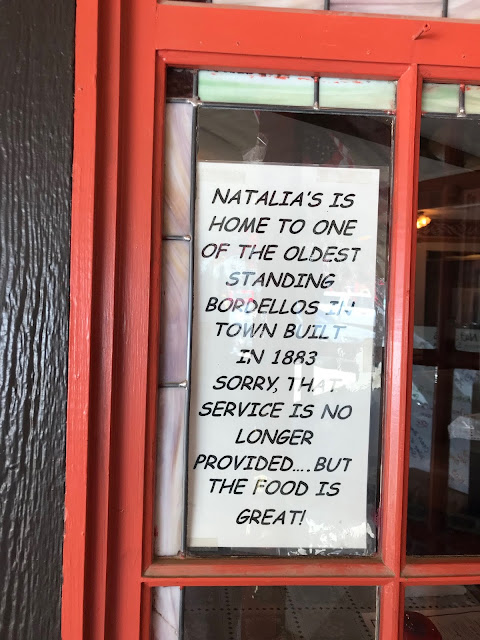 NATALIA'S IS
HOME TO ONE
OF THE OLDEST
STANDING
BORDELLOS IN
TOWN BUILT
IN 1883
SORRY, THAT
SERVICE IS NO
LONGER
PROVIDED....BUT
THE FOOD IS
GREAT!